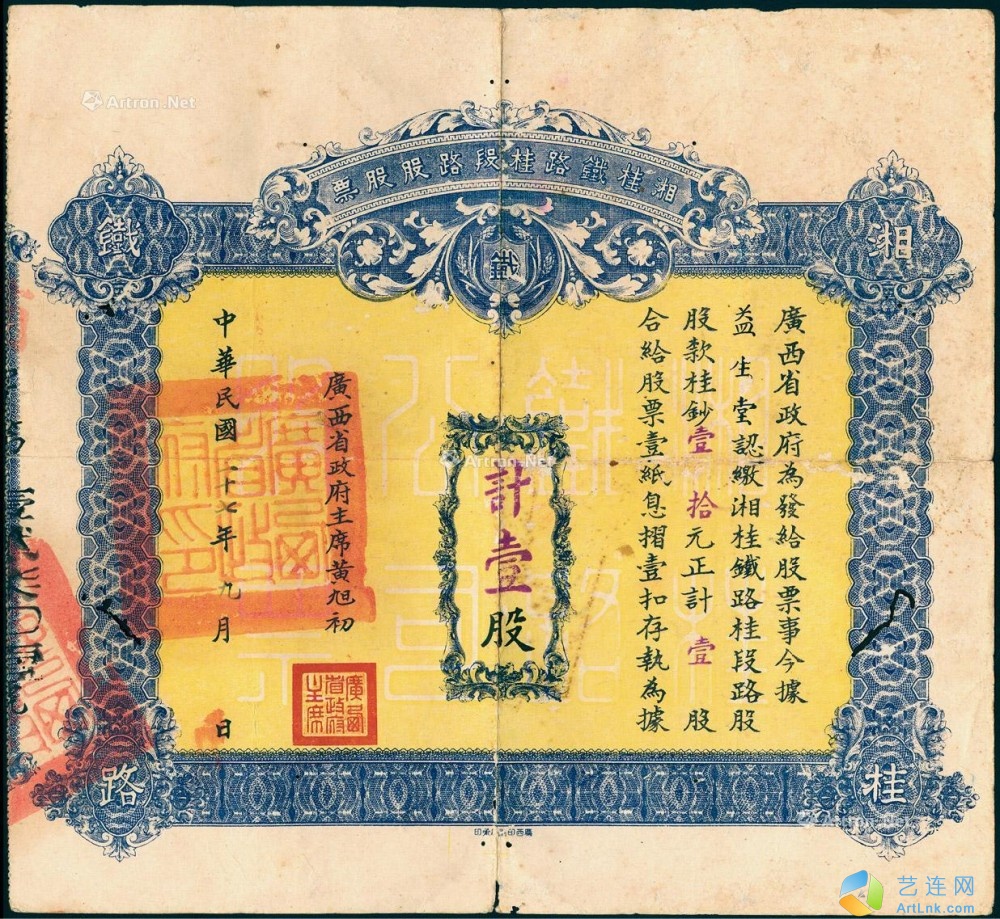 湘桂鐵路桂段路股股票
湘
桂
鐵
路
鐵
廣西省政府為發給股票事今據
益生堂認繳湘桂鐵路桂段路股
股款桂鈔壹拾元正計壹股
合給股票壹紙息摺壹扣存執為據
計壹股
廣西省政府主席黃旭初
中華民國二十七年九月 日
廣西省政府印
廣西省政府主席
Artron.Net
Artron.Net
Artron.Net
艺连网
ArtLnk.com